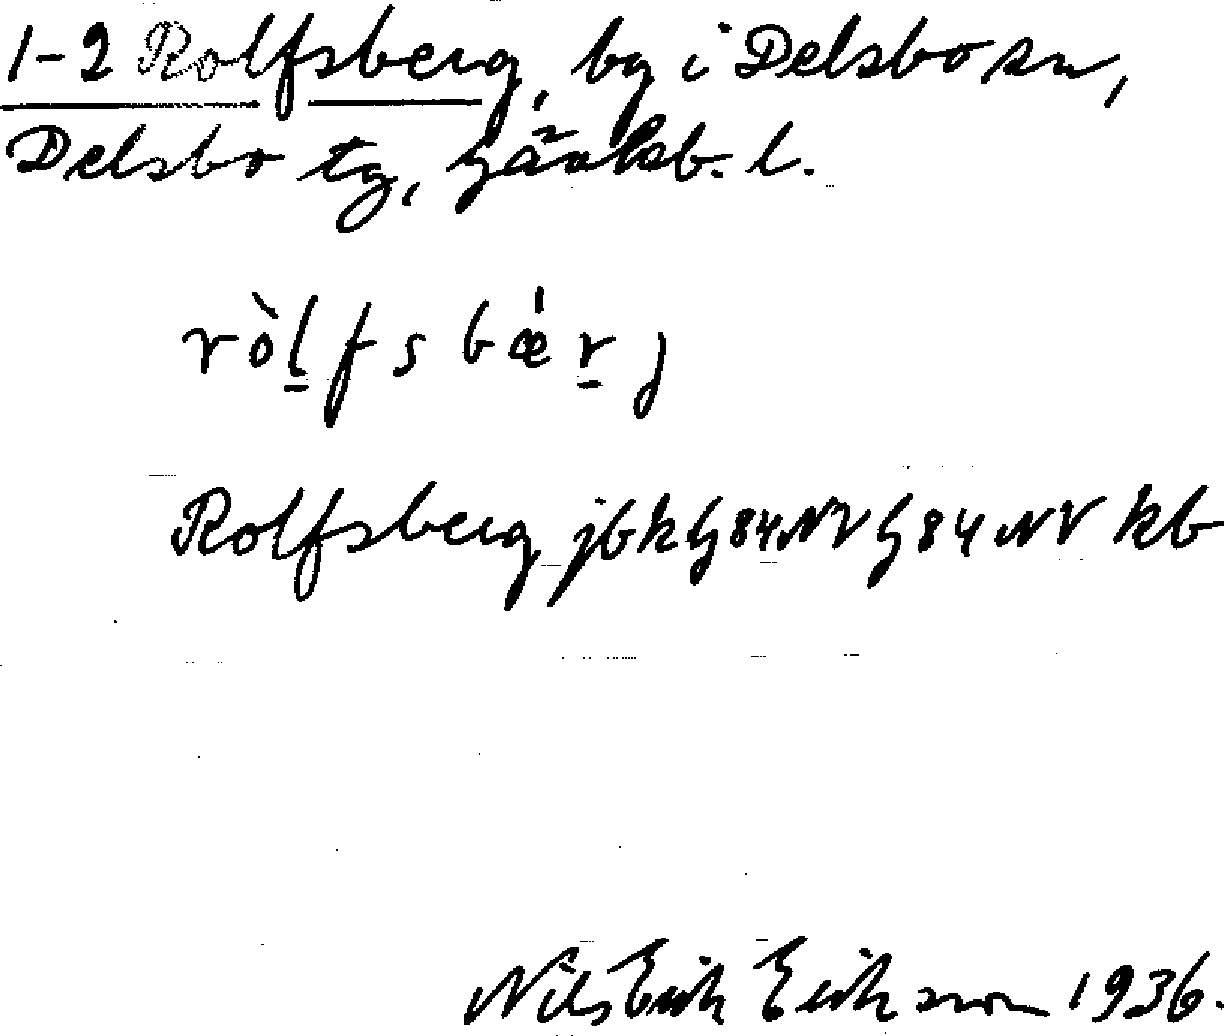 1-2 Rolfsberg, by i Delsbo sn,
Delsbo tg, Gävleb. l.
ròlfsbǽrj
Rolfsberg jbkG84NV G84NV kb
Nils Erik Eriksson 1936.